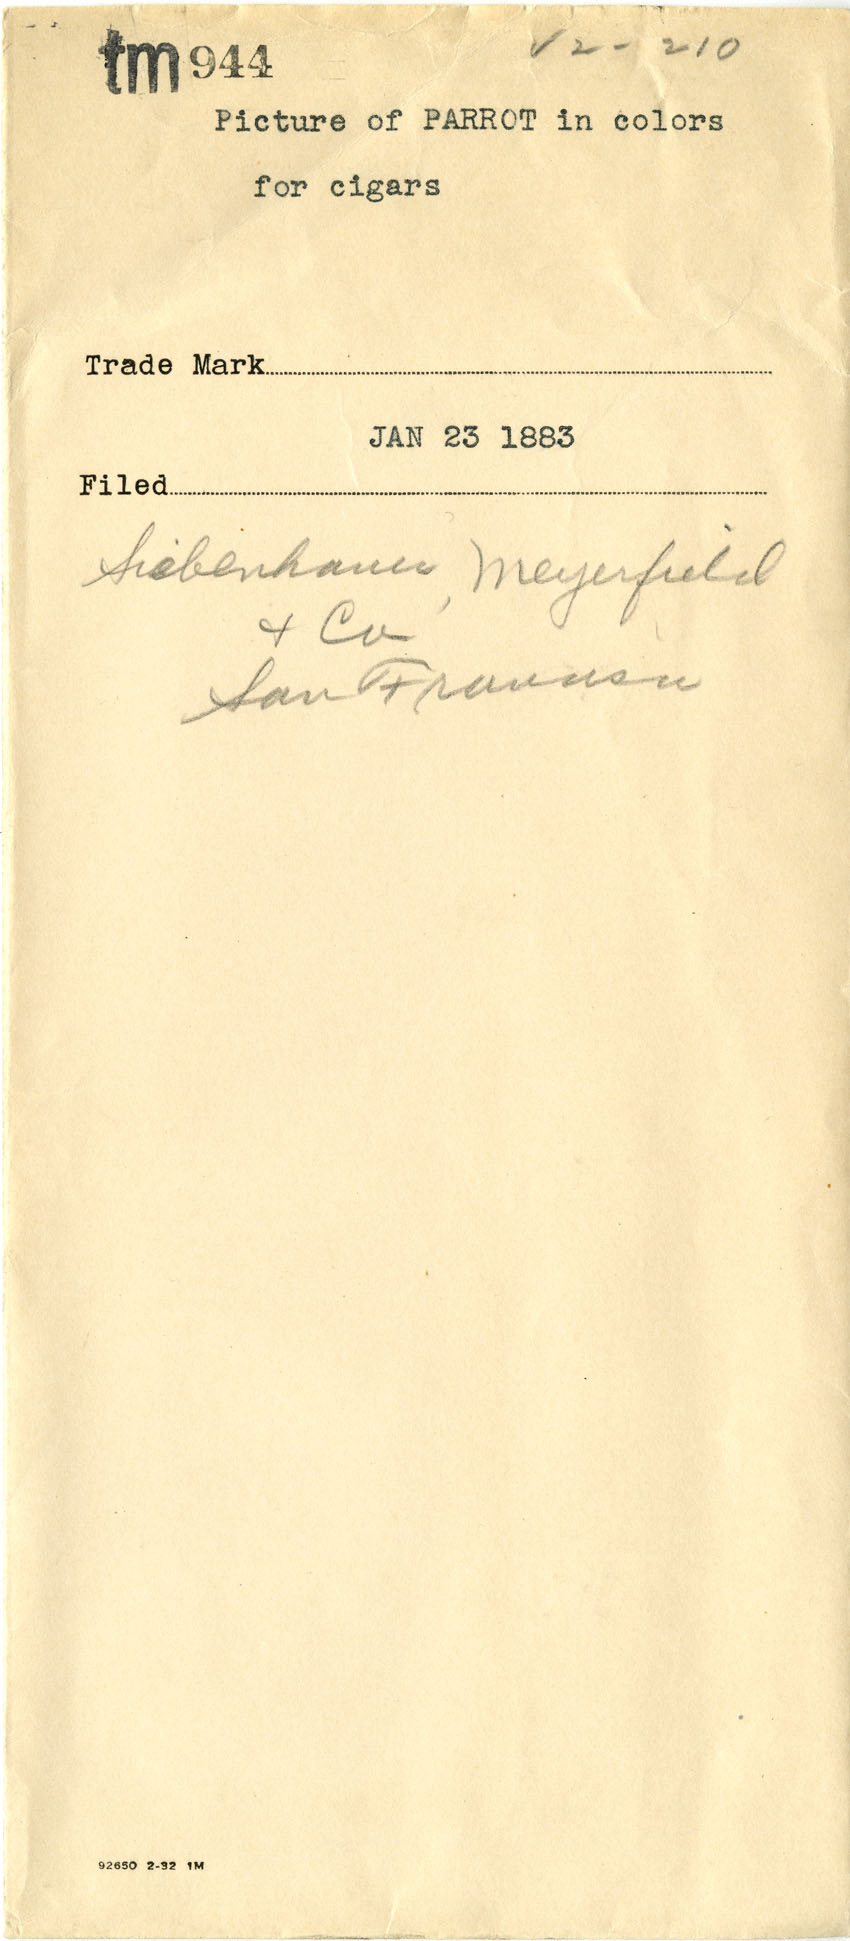 tm 944
V2 - 210
Picture of PARROT in colors
for cigars
Trade Mark
JAN 23 1883
Filed
Siebenhauer, Meyerfield
& Co
San Francisco
92650 2-32 1M